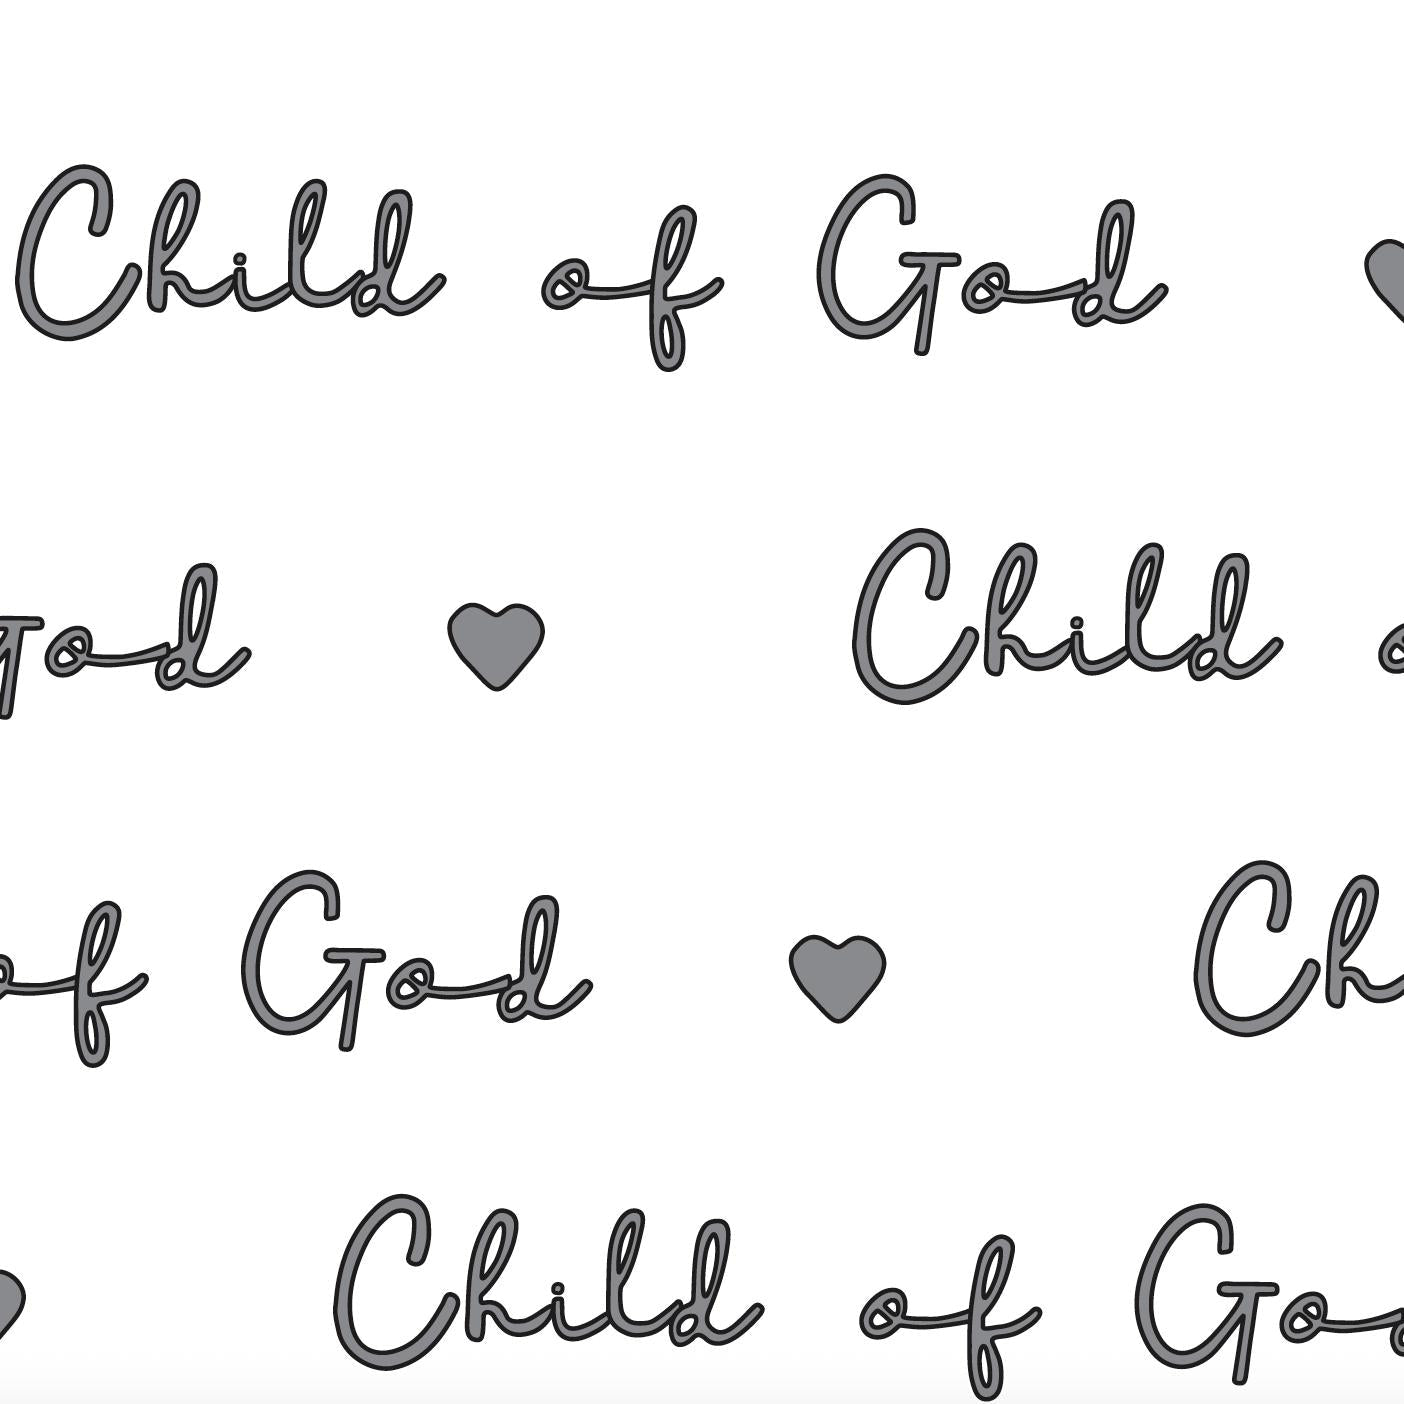 Child of God
God Child o
of God Ch
Child of God